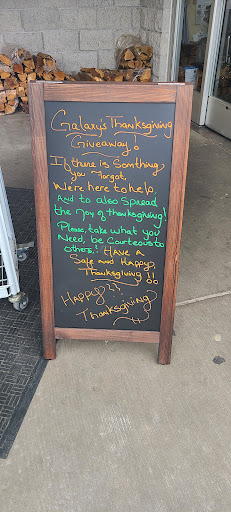 Galaxy's Thanksgiving
Giveaway!
If there is Somthing
you Forgot,
We're here to help,
And to also Spread
the Joy of thanksgiving!
Please, take what you
Need, be Courteous to
others! Have a
Safe and Happy
Thanksgiving!!
Happy
Thanksgiving